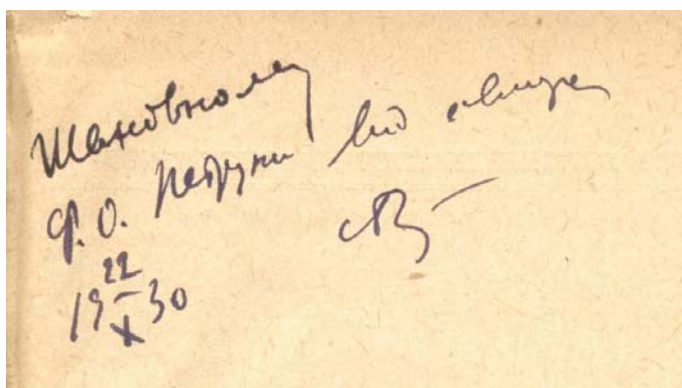 Шановному
Ф. О. Петруню від автора
19 22/X 30